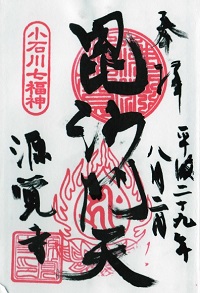 奉拝
平成二十九年
八月二日
毘沙門天
小石川七福神
源覚寺